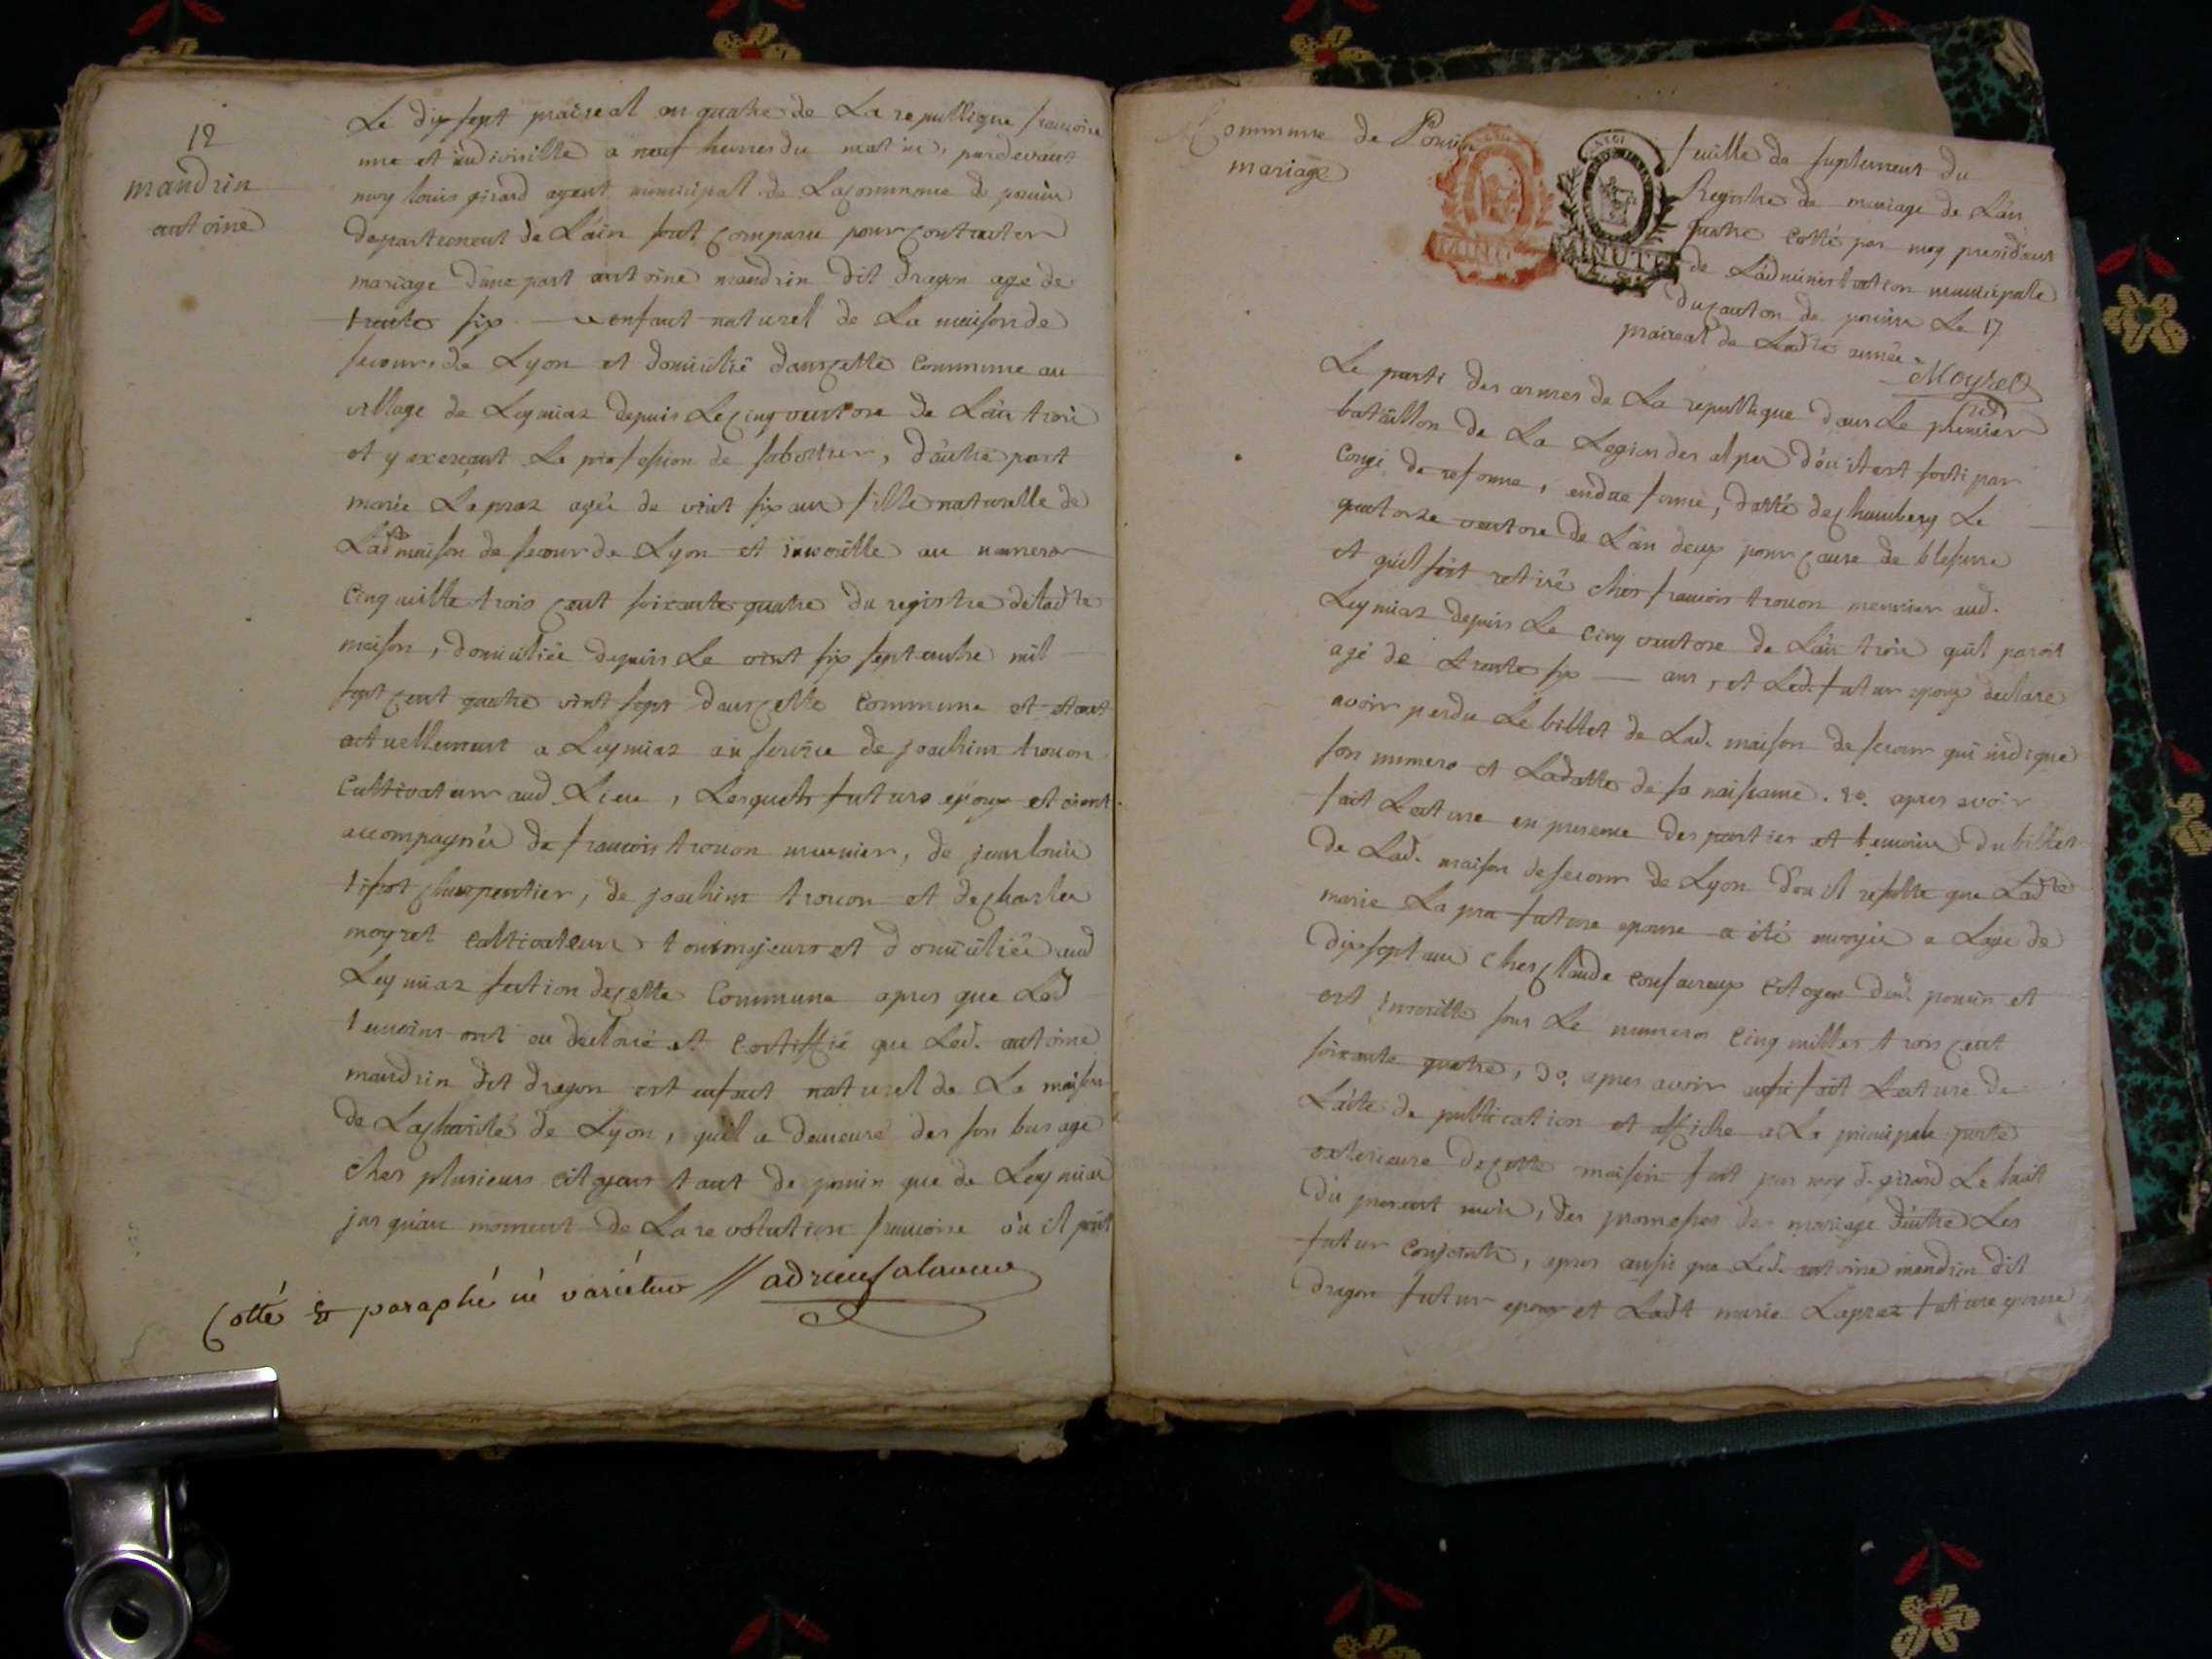 12
mandrin
antoine
Le dix sept praireal an quatre de La republique francoise
une et indivisille a neuf heures du matin, pardevant
moy louis girard agent municipal de Lacommune de poncin
departement de L'ain sont comparu pour contracter
mariage d'une part antoine mandrin dit dragon age de
trente six enfant naturel de La maison de
secours de Lyon et domicilié dans cette commune au
village de Leymiaz depuis Le cinq ventose de L'an trois
et y exerçant Le profession de sabottier, d'autre part
marie Lapraz agée de vint six ans fille naturelle de
Ladte maison de secour de Lyon et inscritte au numero
Cinq mille trois cent soixante quatre du registre de ladte
maison, domiciliée depuis Le vint six septembre mil
sept cent quatre vint sept dans cette commune et etant
actuellement a Leymiaz au service de joachim trouon
Cultivateur aud Lieu, Lesquels futurs epoux etoient
accompagnés de francois trouon meunier, de jean louis
tissot charpentier, de joachim trouon et de charles
moyret cultivateurs tous majeurs et domiciliés aud
Leymiaz section de cette Commune apres que Lesd
temoins ont eu declaré et certiffié que Led. antoine
mandrin dit dragon est enfant naturel de La maison
de La charité de Lyon, qu'il a demeuré des son bas age
Ches plusieurs citoyens tant de poncin que de Leymiaz
jusqu'au moment de La revolution francoise où il prit
Cotté & paraphé nè varietur //
Commune de Poncin
mariage
MINUTE
feuille de suplement du
Registre de mariage de L'an
quatre cotté par moy president
de L'administration municipale
du canton de poncin Le 17
praireal de Ladte année
Moyret
Le parti des armes de La republique dans Le premier
bataillon de La Legion des alpes d'ou il est sorti par
Congé de reforme, en due forme, datté de chambery Le
quatorze ventose de L'an deux pour cause de blessure
et qu'il s'est retiré ches francois trouon meunier aud.
Leymiaz depuis Le cinq ventose de L'an trois qu'il paroit
agé de trente six ans, et Led. futur epoux declare
avoir perdu Le billet de Lad. maison de secour qui indique
son numero et La datte de sa naissance. 2o. apres avoir
fait Lecture en presence des parties et temoins du billet
de Lad. maison de secour de Lyon d'ou il resulte que Ladte
marie La pra future epouse a été envoyée a L'age de
dix sept ans ches Claude citoyen dud. poncin et
est inscritte sous Le numero cinq milles trois cent
soixante quatre, 3o. apres avoir aussi fait Lecture de
L'acte de publication et affiche a La principale porte
exterieure de cette maison fait par moy d. girard Le huit
du present mois, des promesses de mariage d'entre Les
futur conjoints, apres aussi que Led. antoine mandrin dit
dragon futur epoux et Ladt marie Lapraz future epouse